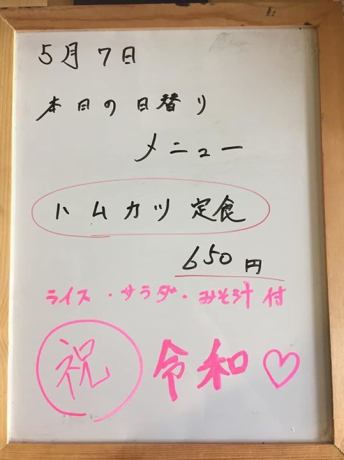 5月7日
本日の日替り
メニュー
ハムカツ定食
650円
ライス・サラダ・みそ汁付
祝 令和♡